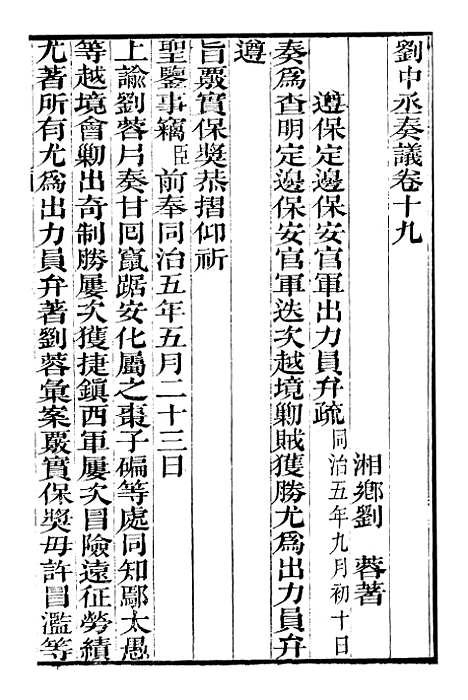 劉中丞奏議卷十九
湘鄉劉　蓉著
遵保定邊保安官軍出力員弁疏同治五年九月初十日
奏爲查明定邊保安官軍迭次越境勦賊獲勝尤爲出力員弁
遵
旨覈實保獎恭摺仰祈
聖鑒事竊臣前奉同治五年五月二十三日
上諭劉蓉片奏甘回竄踞安化屬之棗子碥等處同知鄢太愚
等越境會勦出奇制勝屢次獲捷鎮西軍屢次冒險遠征勞績
尤著所有尤爲出力員弁著劉蓉彙案覈實保獎毋許冒濫等